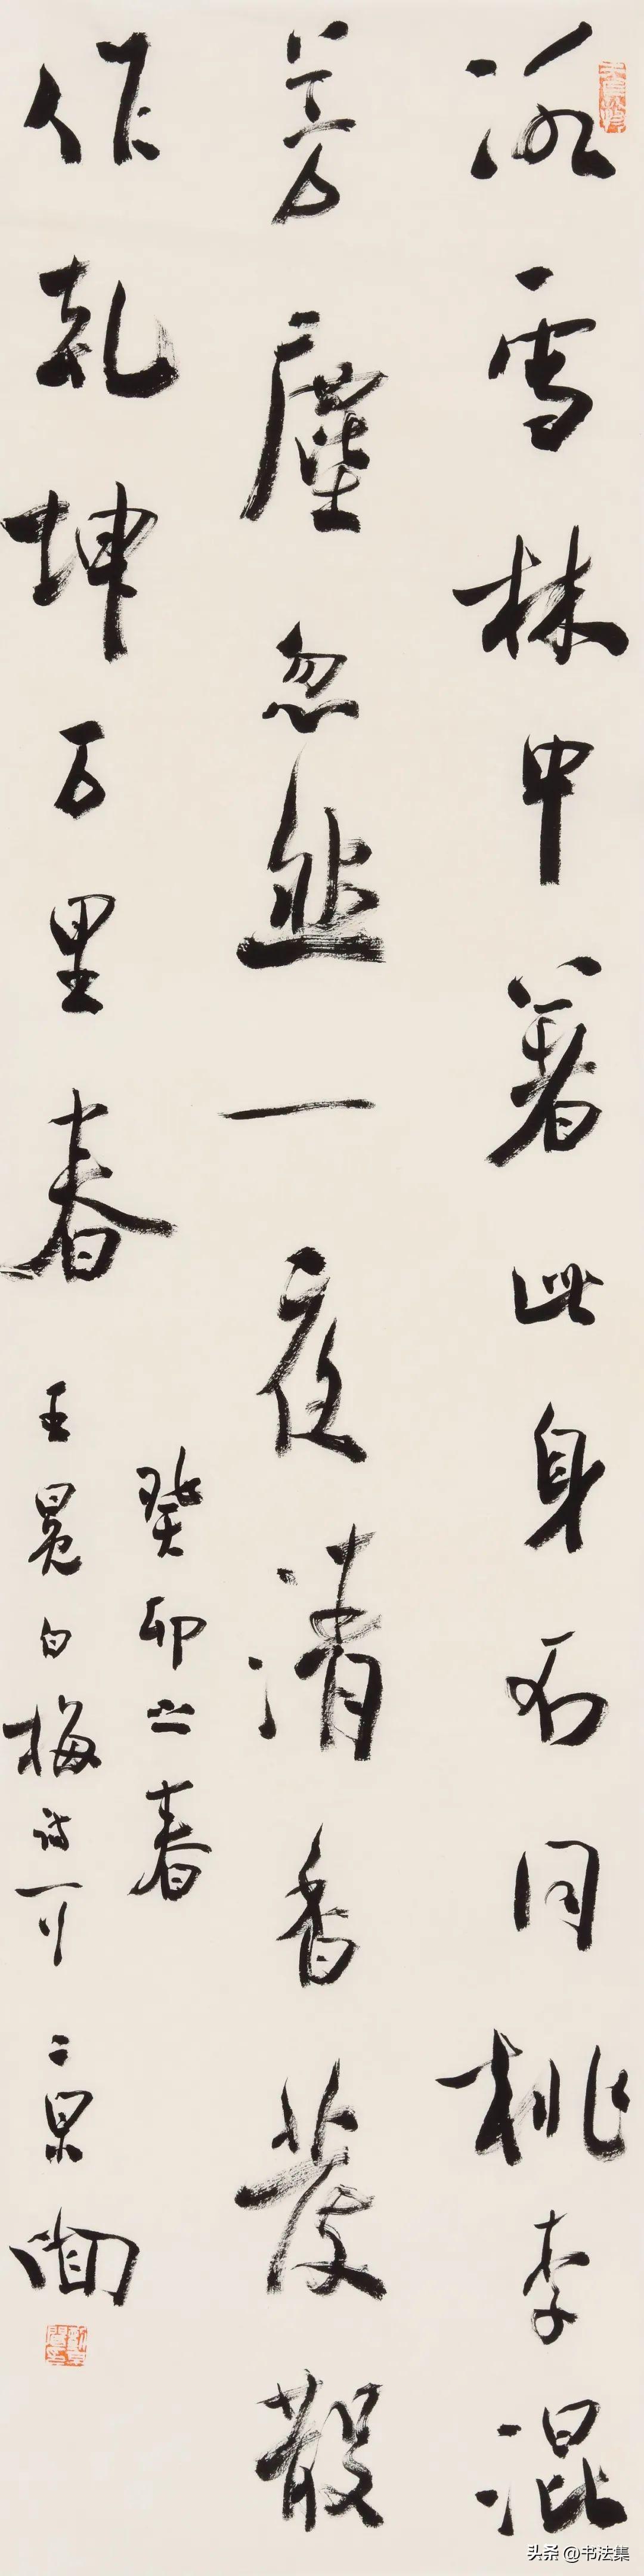 冰雪林中著此身不同桃李混
芳塵忽然一夜清香發散
作乾坤万里春
癸卯之春
王冕白梅诗
头条 @书法集